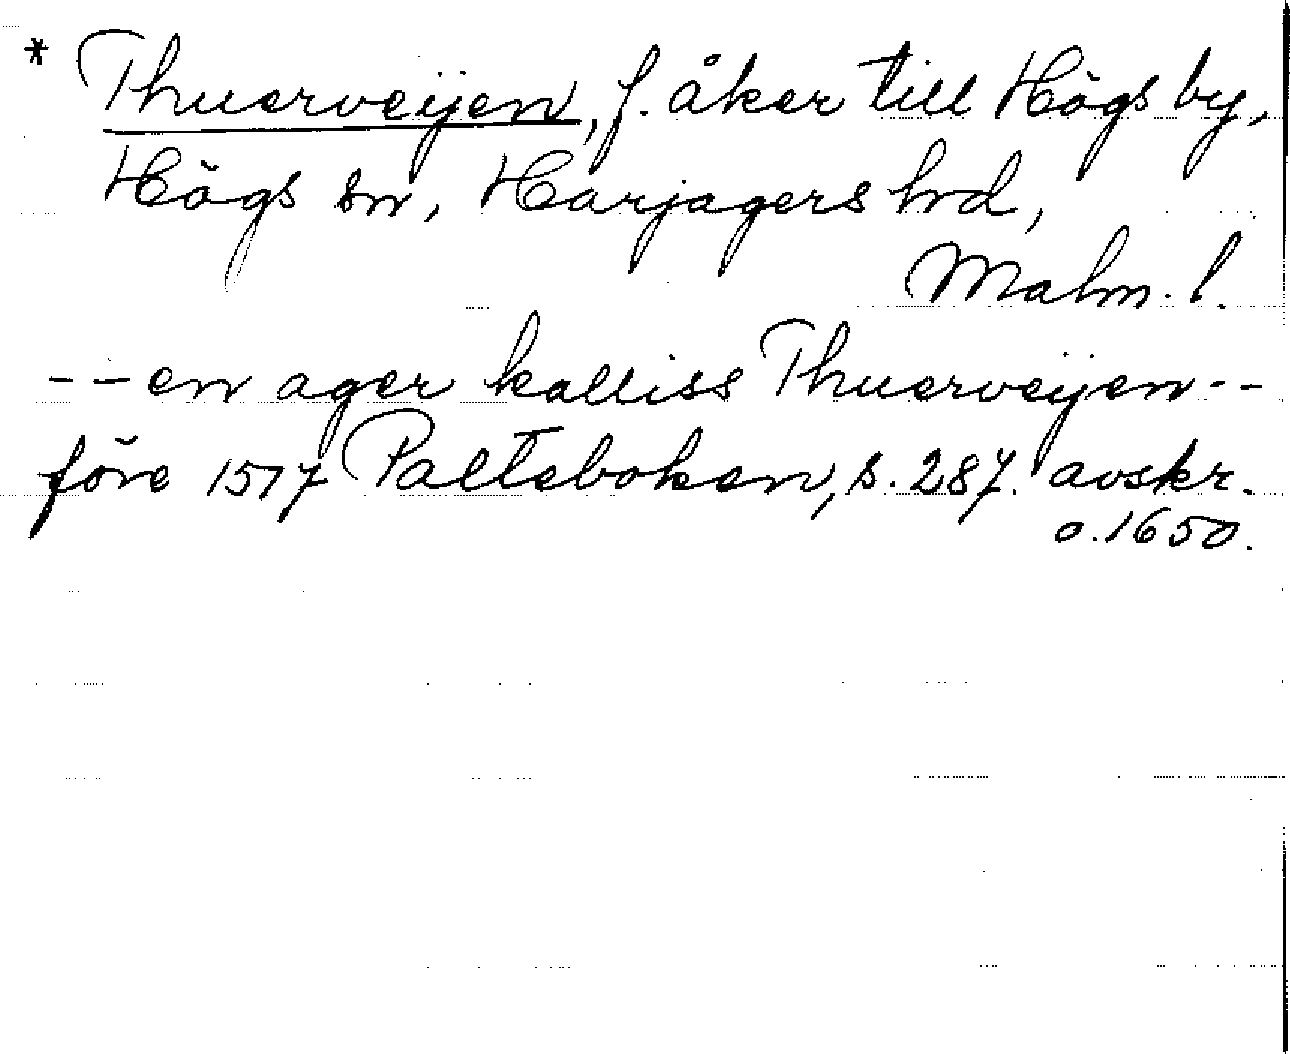 * Thuerveijen, f. åker till Högs by,
Högs sn, Harjagers hd,
Malm. l.
-- en ager kalliss Thuerveijen --
före 1517 Palteboken, s. 287. avskr.
o. 1650.